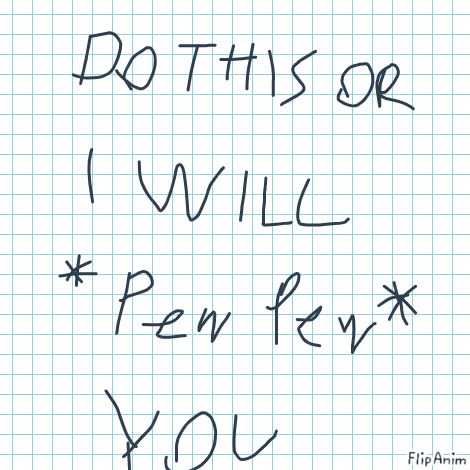 DO THIS OR
I WILL
*Pew Pew*
YOU
FlipAnim